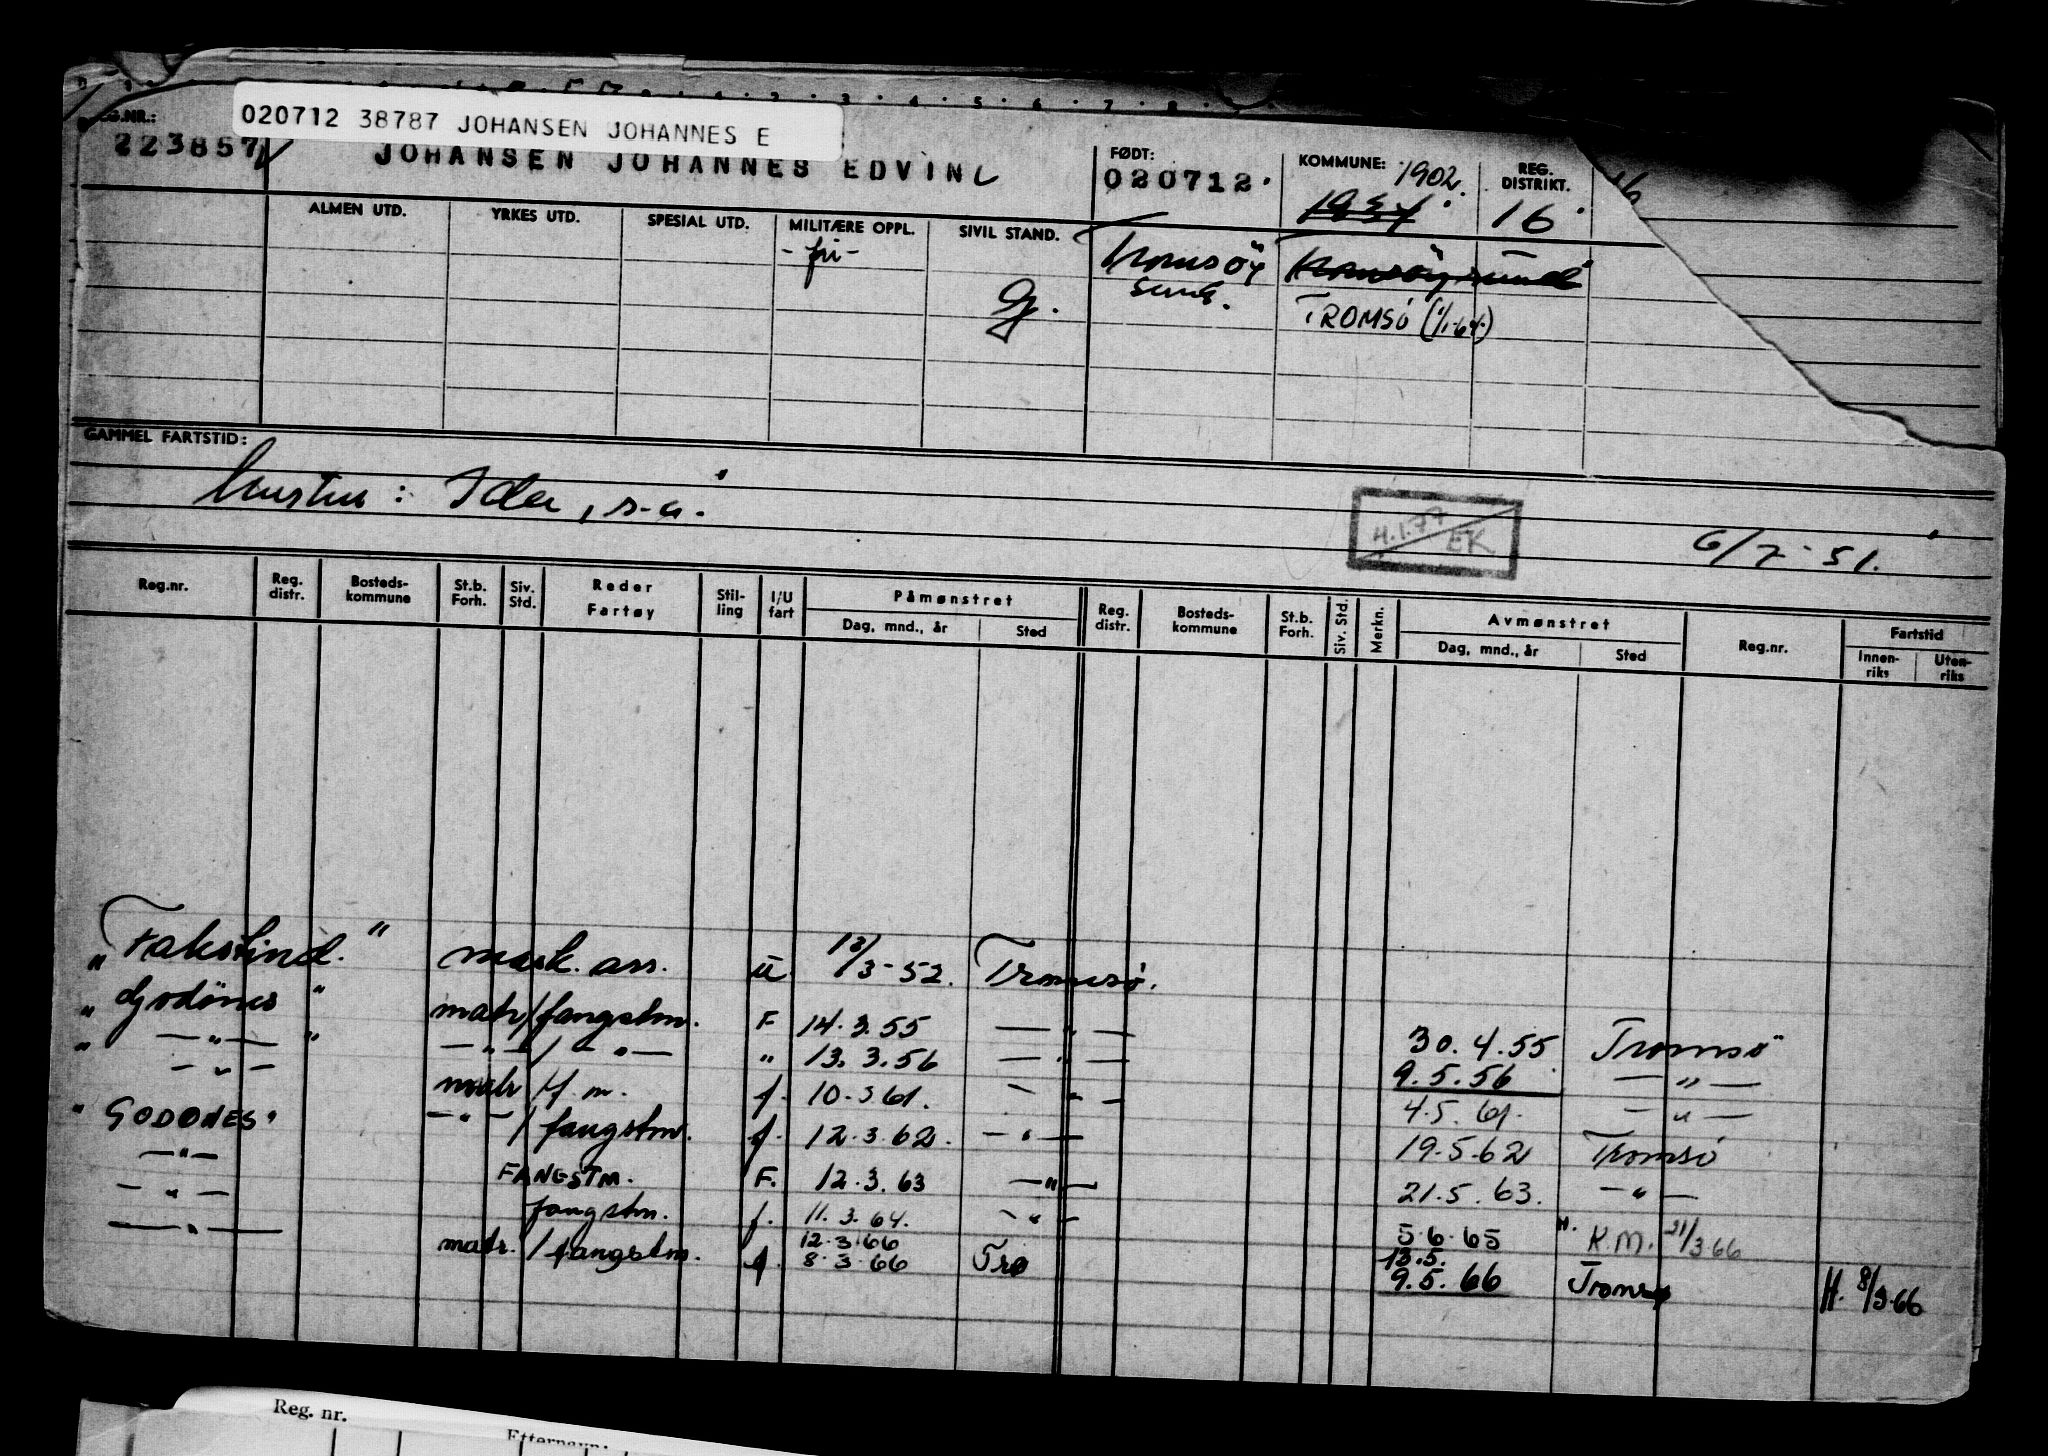 020712 38787 JOHANSEN JOHANNES E
223857 JOHANSEN JOHANNES EDVIN
FØDT: 020712
KOMMUNE: 1902
REG. DISTRIKT. 16
ALMEN UTD. YRKES UTD. SPESIAL UTD. MILITÆRE OPPL. SIVIL STAND.
- fri -
G.
Tromsöy
sund.
TROMSØ (1/1-64)
GAMMEL FARTSTID:
hustru: Ida, s.a.
4.1.77 EK
6/7-51.
Reg.nr. Reg. distr. Bosteds-kommune St.b. Forh. Siv. Std. Reder Fartøy Stil-ling I/U fart Påmønstret Dag, mnd., år Sted Reg. distr. Bosteds-kommune St.b. Forh. Siv. Std. Merkn. Avmønstret Dag, mnd., år Sted Reg.nr. Fartstid Innen-riks Uten-riks
" Fakstind." mask. ass. u 13/3-52. Tromsø.
" Godönes " matr/fangstm. F 14.3.55 — " — 30.4.55 Tromsö
" — " — " — " — / — " — " 13.3.56 — " — 9.5.56 — " —
— " — matr/f.m. f. 10.3 61. — " — 4.5.61. — " —
" GODØNES " — " — / fangstm. f. 12.3.62. — " — 19.5.62 Tromsø
— " — FANGSTM. F. 12.3.63 — " — 21.5.63. — " —
— " — fangstm. f. 11.3.64. — " — 5.6.65 H. K.M. 21/3.66
12.3.66 13.5.
— " — matr. / fangstm. f. 8.3.66 Trø 9.5.66 Tromsø H. 8/3.66
Reg. nr.
Etternavn: